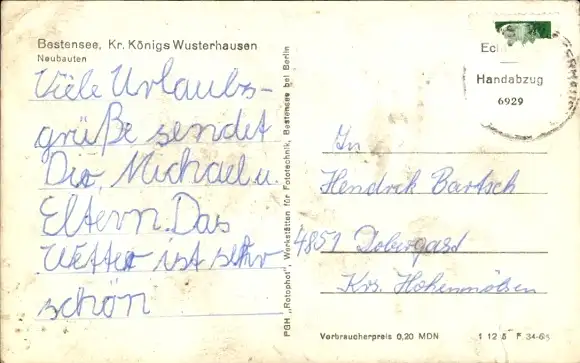 Bestensee, Kr. Königs Wusterhausen
Neubauten
Viele Urlaubs-
grüße sendet
Dir, Michael u.
Eltern. Das
Wetter ist sehr
schön
PGH „Rotophot", Werkstätten für Fototechnik, Bestensee bei Berlin
Handabzug
6929
In
Hendrik Bartsch
4851 Dobergast
Krs. Hohenmölsen
Verbraucherpreis 0,20 MDN
1 12 5 F 34-68